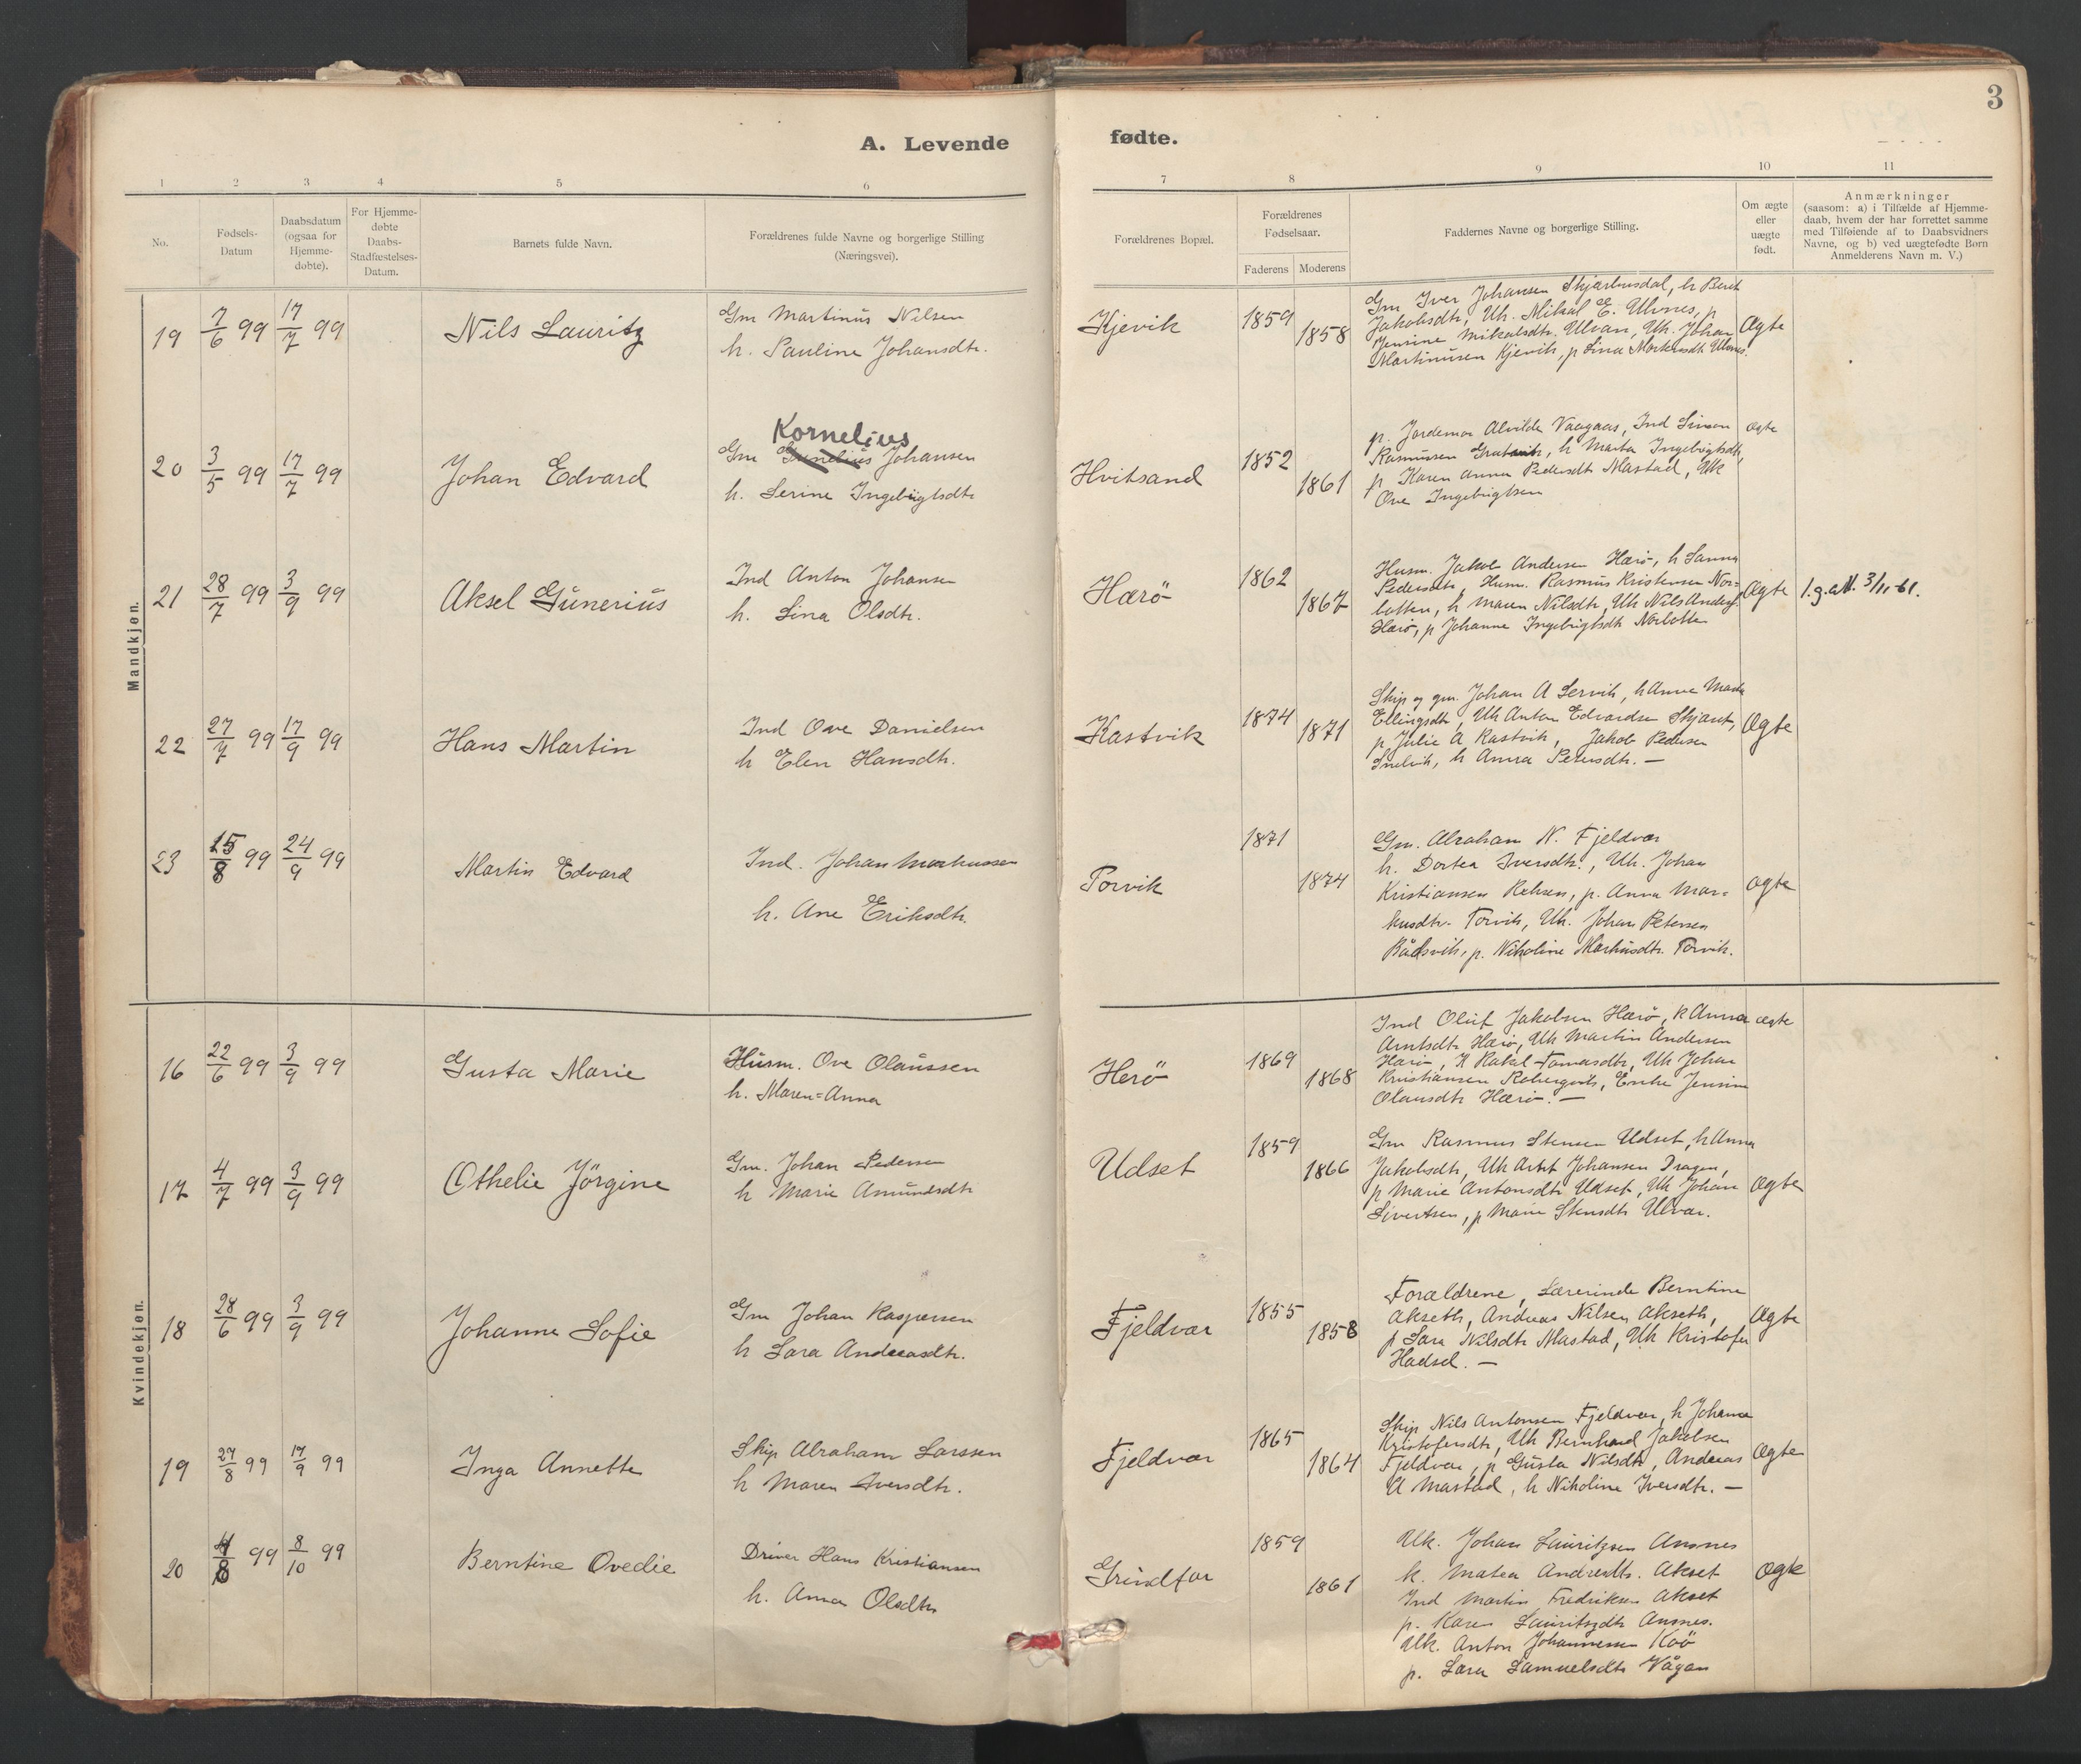 3
A. Levende fødte.
1 2 3 4 5 6 7 8 9 10 11
No.
Fødsels-
Datum
Daabsdatum
(ogsaa for
Hjemme-
døbte).
For Hjemme-
døbte
Daabs-
Stadfæstelses-
Datum.
Barnets fulde Navn.
Forældrenes fulde Navne og borgerlige Stilling
(Næringsvei).
Forældrenes Bopæl.
Forældrenes
Fødselsaar.
Faderens Moderens
Faddernes Navne og borgerlige Stilling.
Om ægte
eller
uægte
født.
Anmærkninger
(saasom: a) i Tilfælde af Hjemme-
daab, hvem der har forrettet samme
med Tilføiende af to Daabsvidners
Navne, og b) ved uægtefødte Børn
Anmelderens Navn m. V.)
Mandkjøn.
19 7/6 99 17/7 99 Nils Lauritz
Gm Martinus Nilsen
h. Pauline Johansdtr.
Kjevik 1859 1858
Gm Iver Johansen h Berit
Jakobsdtr, Uk. Mikal E. Ulvnes, p
Jensine Mikalsdtr. Ulvan, Uk. Johan
Martinusen Kjevik, p Lina Ulvnes.
Ægte
20 3/5 99 17/7 99 Johan Edvard
Kornelius
Gm Johansen
h. Serine Ingebrigtsdtr
Hvitsand 1852 1861
p. Jordemor Alvilde Vaagaas, Ind Simon
Rasmussen h Marta Ingebrigtsdtr,
p Karen Anna Pedersdtr Mastad, Uk
Ove Ingebrigtsen
ægte
21 28/7 99 3/9 99 Aksel Gunerius
Ind Anton Johansen
h. Lina Olsdtr.
Hærö 1862 1867
Husm. Jakob Andersen Hærö, h Sanna
Pedersdtr, Husm. Rasmus Kristensen Nor-
lotten, h Maren Nilsdtr, Uk Nils Anders.
Hærö, p Johanne Ingebrigtsdtr Norlotten
Ægte
l.g.att. 3/11-61.
22 27/7 99 17/9 99 Hans Martin
Ind Ove Danielsen
h Elen Hansdtr.
Kastvik 1874 1871
Skip og gm. Johan A Servik, h Anne Marta
Ellingsdtr, Uk Anton Edvardsen
p Julie A Kastvik, Jakob Pedersen
h Anna Petersdtr. —
Ægte
23 15/8 99 24/9 99 Martin Edvard
Ind. Johan Markussen
h. Ane Eriksdtr.
Torvik 1871 1874
Gm. Abraham N. Fjeldvær
h. Dortea Iversdtr., Uk. Johan
Kristiansen Reksen, p. Anna Mar-
kusdtr. Torvik, Uk. Johan Petersen
Bådsvik, p. Nikoline Markusdtr. Torvik.
ægte
Kvindekjøn.
16 22/6 99 3/9 99 Gusta Marie
Husm. Ove Olaussen
h. Maren-Anna
Herö 1869 1868
Ind Oluf Jakobsen Hærö, k Anna
Arntsdtr Hærö, Uk Martin Andersen
Hærö, K Rakel Tomasdtr, Uk Johan
Kristiansen Enke Jensine
Olausdtr Hærö. —
ægte
17 4/7 99 3/9 99 Othelie Jörgine
Gm. Johan Pedersen
h Marie Amundsdtr
Udset 1859 1866
Gm Rasmus Stensen Udset, h Anna
Jakobsdtr, Uk Artet Johansen Dragen,
p Marie Antonsdtr Udset, Uk Johan
Sivertsen, p Marie Stensdtr Ulvær.
Ægte
18 28/6 99 3/9 99 Johanne Sofie
Gm Johan Kaspersen
h Sara Andreasdtr.
Fjeldvær 1855 1858
Forældrene, Lærerinde Berntine
Akseth, Andreas Nilsen Akseth,
p Sara Nilsdtr Mastad, Uk Kristofer
Hadsel. —
Ægte
19 27/8 99 17/9 99 Inga Annette
Skip Abraham Larssen
h Maren Iversdtr.
Fjeldvær 1865 1864
Skip Nils Antonsen Fjeldvær, h Johanna
Kristofersdtr, Uk Bernhard Jakobsen
Fjeldvær, p Gusta Nilsdtr, Andreas
A Mastad, h Nikoline Iversdtr. —
Ægte
20 4/8 99 8/10 99 Berntine Ovedie
Driver Hans Kristiansen
h. Anna Olsdtr
Grindfar 1859 1861
Uk. Johan Lauritzsen Ansnes
k. Matea Andreasdtr. Akset
Ind Martin Fredriksen Akset
p. Karen Lauritsdtr Ansnes.
Uk. Anton Johannessen Koö
p. Sara Samuelsdtr Vågan
Ægte